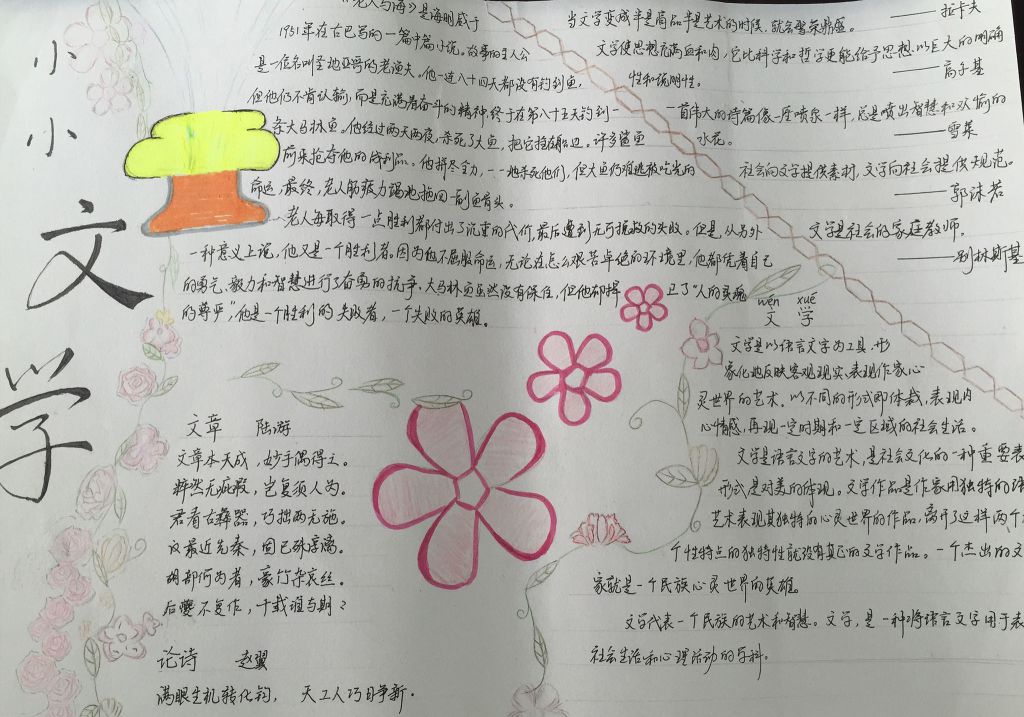 小小文学
《老人与海》是海明威于
1951年在古巴写的一篇中篇小说，故事的主人公
是一位名叫圣地亚哥的老渔夫。他一连八十四天都没有钓到鱼，
但他仍不肯认输，而是充满着奋斗的精神，终于在第八十五天钓到一
条大马林鱼。他经过两天两夜，杀死了大鱼，把它拴在船边。许多鲨鱼
前来抢夺他的战利品。他拼尽全力，一一地杀死他们，但大鱼仍难逃被吃光的
命运，最终，老人筋疲力竭地拖回一副鱼骨头。
老人每取得一点胜利都付出了沉重的代价，最后遭到无可挽救的失败。但是，从另外
一种意义上说，他又是一个胜利者。因为他不屈服命运，无论在怎么艰苦卓绝的环境里，他都凭着自己
的勇气、毅力和智慧进行了奋勇的抗争。大马林鱼虽然没有保住，但他却捍卫了“人的灵魂
的尊严”，他是一个胜利的失败者，一个失败的英雄。
当文学变成半是商品半是艺术的时候，就会繁荣鼎盛。
——拉卡夫
文学使思想充满血和肉，它比科学和哲学更能给予思想以巨大的明确
性和说明性。
——高尔基
一首伟大的诗篇像一座喷泉一样，总是喷出智慧和欢愉的
水花。
——雪莱
社会向文学提供素材，文学向社会提供规范。
——郭沫若
文学是社会的家庭教师。
——别林斯基
wén xué
文 学
文学是以语言文字为工具，形
象化地反映客观现实、表现作家心
灵世界的艺术。以不同的形式即体裁，表现内
心情感，再现一定时期和一定区域的社会生活。
文学是语言文字的艺术，是社会文化的一种重要表
形式是对美的体现。文学作品是作家用独特的语
艺术表现其独特的心灵世界的作品，离开了这样两个
个性特点的独特性就没有真正的文学作品。一个杰出的文
家就是一个民族心灵世界的英雄。
文学代表一个民族的艺术和智慧。文学，是一种将语言文字用于表
社会生活和心理活动的学科。
文章 陆游
文章本天成，妙手偶得之。
粹然无疵瑕，岂复须人为。
君看古彝器，巧拙两无施。
汉最近先秦，固已殊淳漓。
胡部何为者，豪竹杂哀丝。
后夔不复作，千载谁与期？
论诗 赵翼
满眼生机转化钧， 天工人巧日争新。